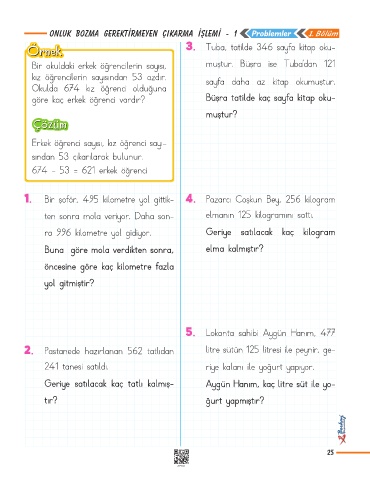 ONLUK BOZMA GEREKTİRMEYEN ÇIKARMA İŞLEMİ - 1
Problemler
1. Bölüm
Örnek
Bir okuldaki erkek öğrencilerin sayısı,
kız öğrencilerin sayısından 53 azdır.
Okulda 674 kız öğrenci olduğuna
göre kaç erkek öğrenci vardır?
Çözüm
Erkek öğrenci sayısı, kız öğrenci sayı-
sından 53 çıkarılarak bulunur.
674 - 53 = 621 erkek öğrenci
1. Bir şoför, 495 kilometre yol gittik-
ten sonra mola veriyor. Daha son-
ra 996 kilometre yol gidiyor.
Buna göre mola verdikten sonra,
öncesine göre kaç kilometre fazla
yol gitmiştir?
2. Pastanede hazırlanan 562 tatlıdan
241 tanesi satıldı.
Geriye satılacak kaç tatlı kalmış-
tır?
3. Tuba, tatilde 346 sayfa kitap oku-
muştur. Büşra ise Tuba'dan 121
sayfa daha az kitap okumuştur.
Büşra tatilde kaç sayfa kitap oku-
muştur?
4. Pazarcı Coşkun Bey, 256 kilogram
elmanın 125 kilogramını sattı.
Geriye satılacak kaç kilogram
elma kalmıştır?
5. Lokanta sahibi Aygün Hanım, 477
litre sütün 125 litresi ile peynir, ge-
riye kalanı ile yoğurt yapıyor.
Aygün Hanım, kaç litre süt ile yo-
ğurt yapmıştır?
25